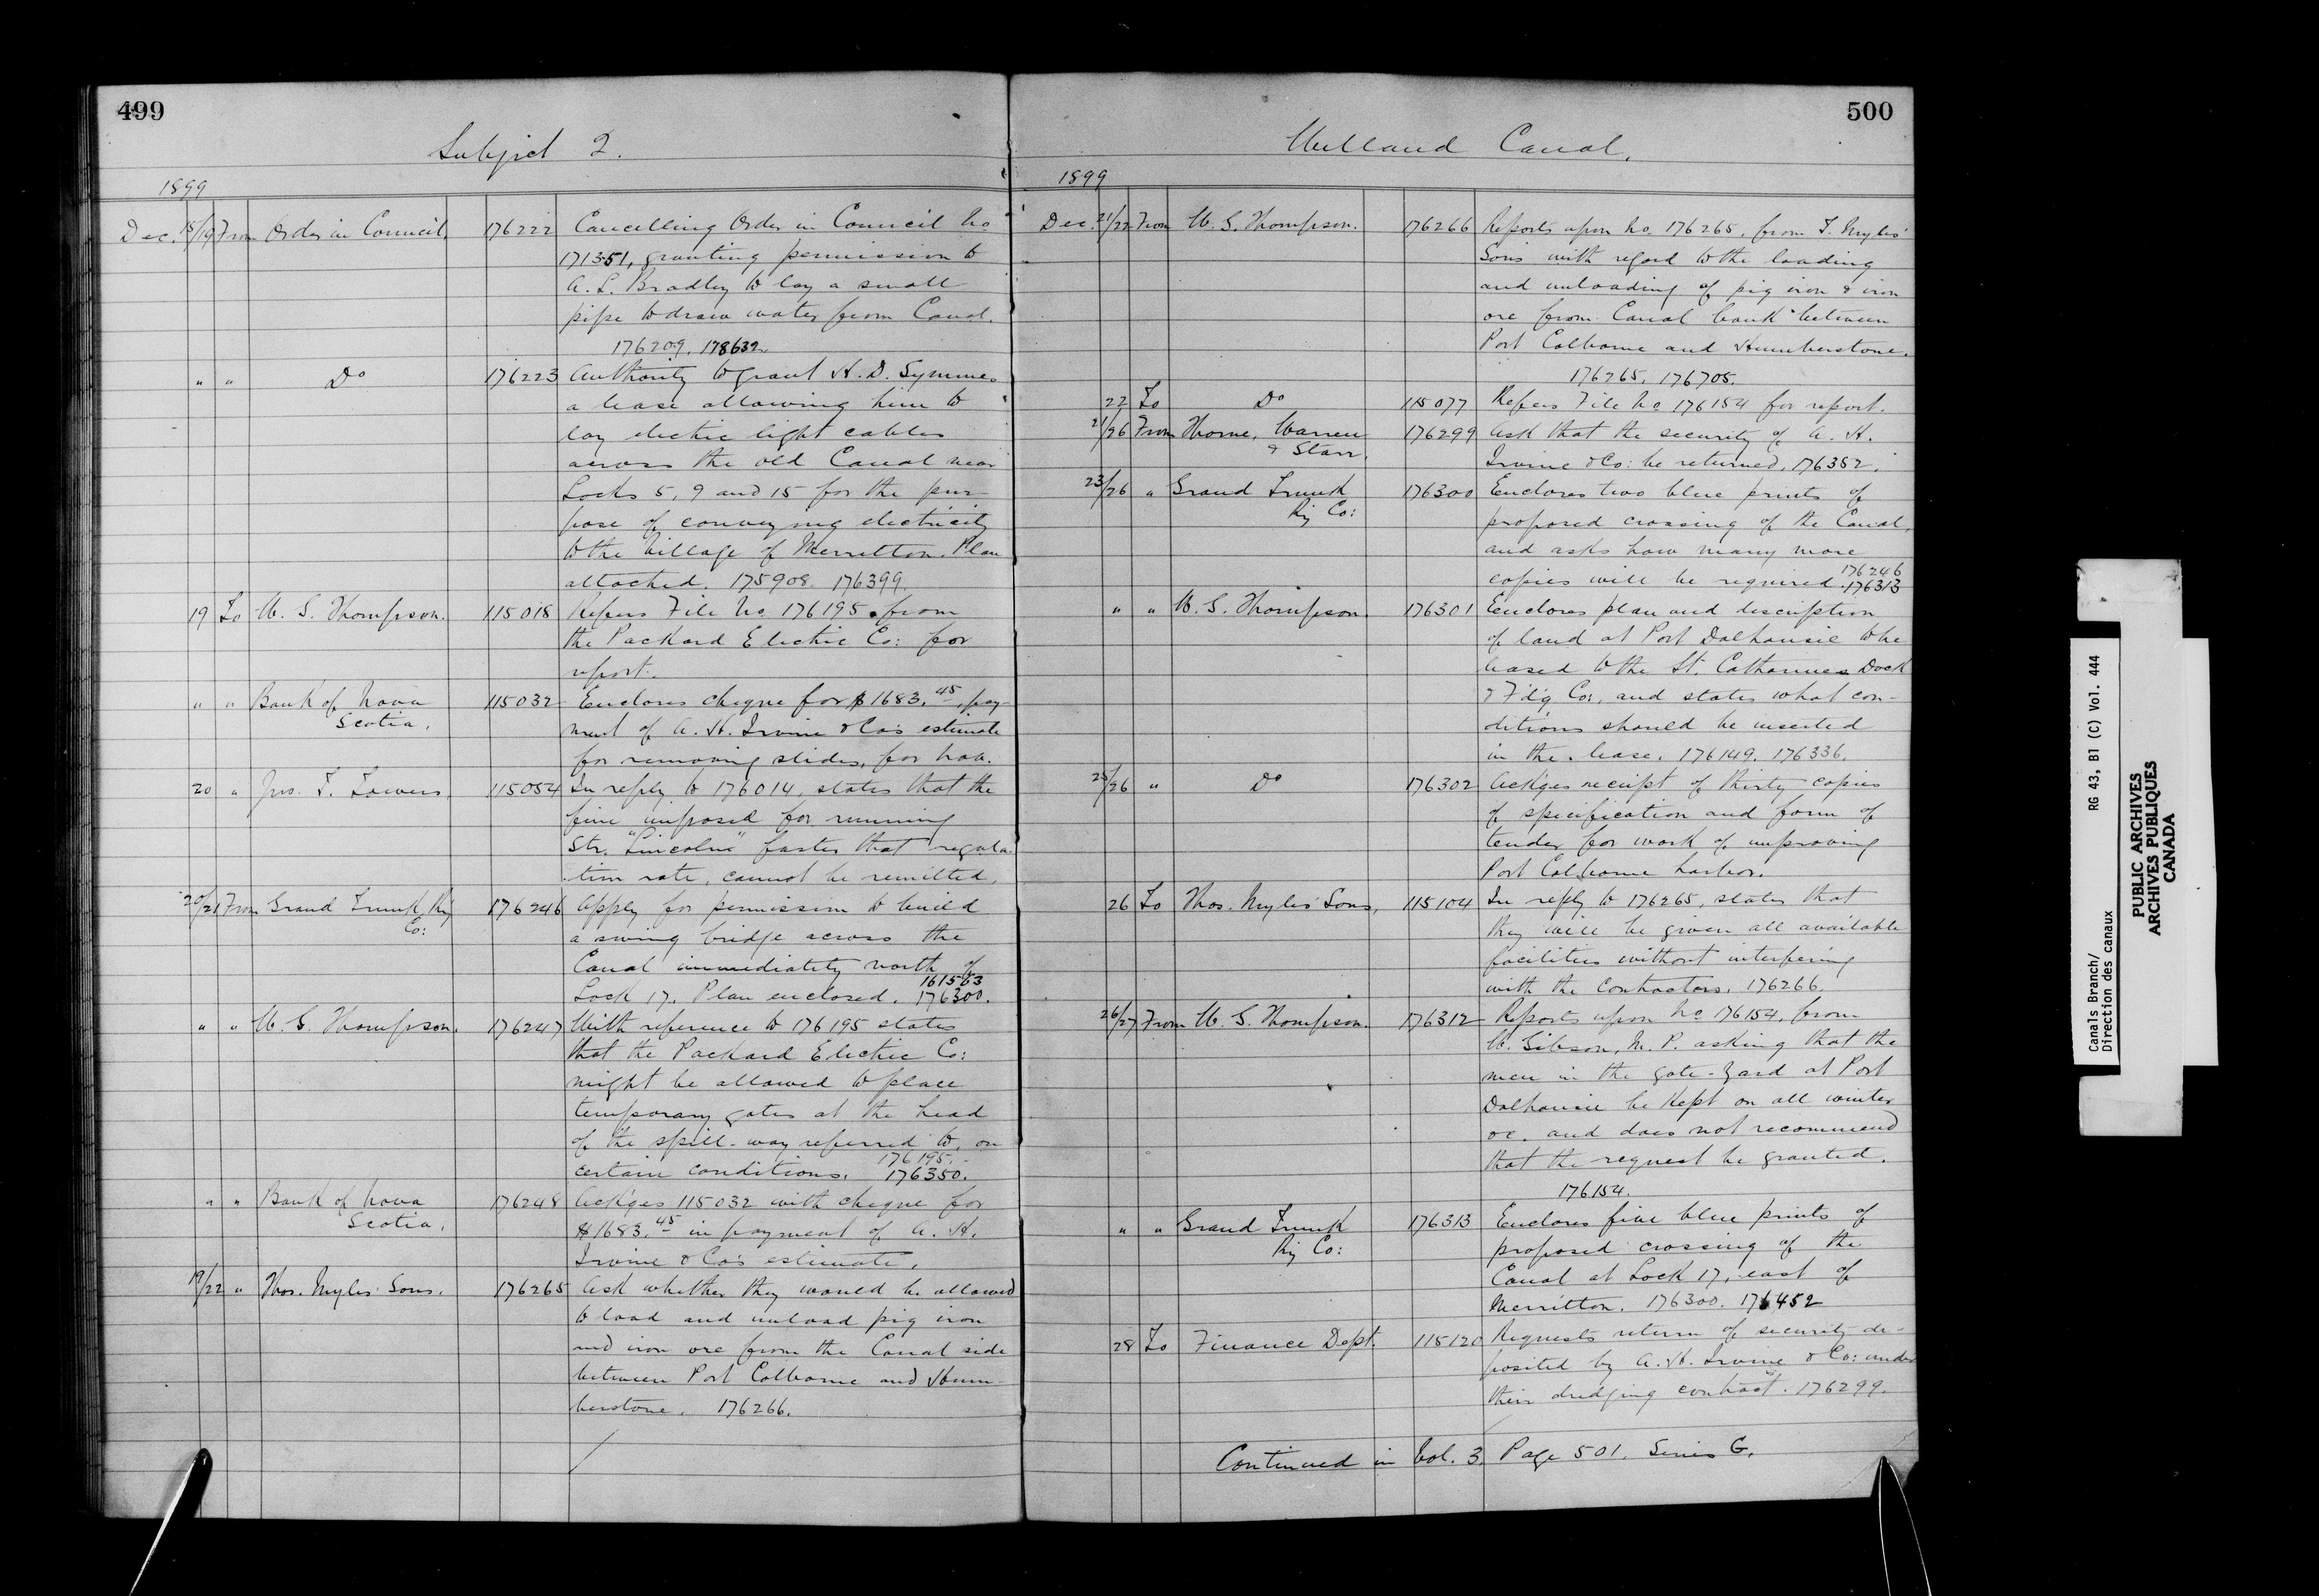 499
Subject 2.
1899
Dec. 18/19 From Order in Council. 176222 Cancelling Order in Council No
171351, granting permission to
A. L. Bradley to lay a small
pipe to draw water from Canal.
176209. 178632.
" " Do 176223 Authority to grant H. D. Symmes
a lease allowing him to
lay electric light cables
across the old Canal near
Locks 5, 9 and 15 for the pur-
pose of conveying electricity
to the Village of Merritton. Plan
attached. 175908. 176399.
19 To W. G. Thompson. 115018 Refers File No. 176195 from
the Packard Electric Co: for
report.
" " Bank of Nova 115032 Encloses cheque for $1683.45, pay-
Scotia.
ment of A. H. Irvine & Co's estimate
for removing slides, for Nov.
20 " Jno. T. Towers 115054 In reply to 176014, states that the
fine imposed for running
Str. "Lincoln" faster that regula-
tion rate, cannot be remitted.
20/21 From Grand Trunk Ry 176246 Apply for permission to build
Co:
a swing bridge across the
Canal immediately north of
161563
Lock 17. Plan enclosed. 176300.
" " W. G. Thompson. 176247 With reference to 176195 states
that the Packard Electric Co:
might be allowed to place
temporary gates at the head
of the spill-way referred to, on
176195.
certain conditions. 176350.
" " Bank of Nova 176248 Ack'ges 115032 with cheque for
Scotia.
$1683.45 in payment of A. H.
Irvine & Co's estimate.
19/22 " Thos. Myles' Sons. 176265 Ask whether they would be allowed
to load and unload pig iron
and iron ore from the Canal side
between Port Colborne and Hum-
berstone. 176266.
500
Welland Canal.
1899
Dec. 21/22 From W. G. Thompson. 176266 Reports upon No. 176265, from T. Myles'
Sons with regard to the loading
and unloading of pig iron & iron
ore from Canal bank between
Port Colborne and Humberstone.
176265. 176705.
22 To Do 115077 Refers File No 176154 for report.
21/26 From Thorne, Warren 176299 Ask that the security of A. H.
& Starr.
Irvine & Co: be returned. 176352.
23/26 " Grand Trunk 176300 Encloses two blue prints of
Ry Co:
proposed crossing of the Canal,
and asks how many more
176246
copies will be required. 176313
" " W. G. Thompson. 176301 Encloses plan and description
of land at Port Dalhousie to be
leased to the St. Catharines Dock
& F'd'g Co:, and states what con-
ditions should be inserted
in the lease. 176149. 176336.
25/26 " Do 176302 Ack'ges receipt of thirty copies
of specification and form of
tender for work of improving
Port Colborne harbor.
26 To Thos. Myles' Sons, 115104 In reply to 176265, states that
they will be given all available
facilities without interfering
with the Contractors. 176266.
26/27 From W. G. Thompson. 176312 Reports upon No 176154, from
W. Gibson, M. P. asking that the
men in the gate-yard at Port
Dalhousie be kept on all winter
&c. and does not recommend
that the request be granted.
176154.
" " Grand Trunk 176313 Encloses five blue prints of
Ry Co:
proposed crossing of the
Canal at Lock 17, east of
Merritton. 176300. 176452
28 To Finance Dept. 115120 Requests return of security de-
posited by A. H. Irvine & Co: under
their dredging contract. 176299.
Continued in Vol. 3. Page 501. Series G.
Canals Branch/ RG 43, B1 (C) Vol. 444
Direction des canaux
PUBLIC ARCHIVES
ARCHIVES PUBLIQUES
CANADA